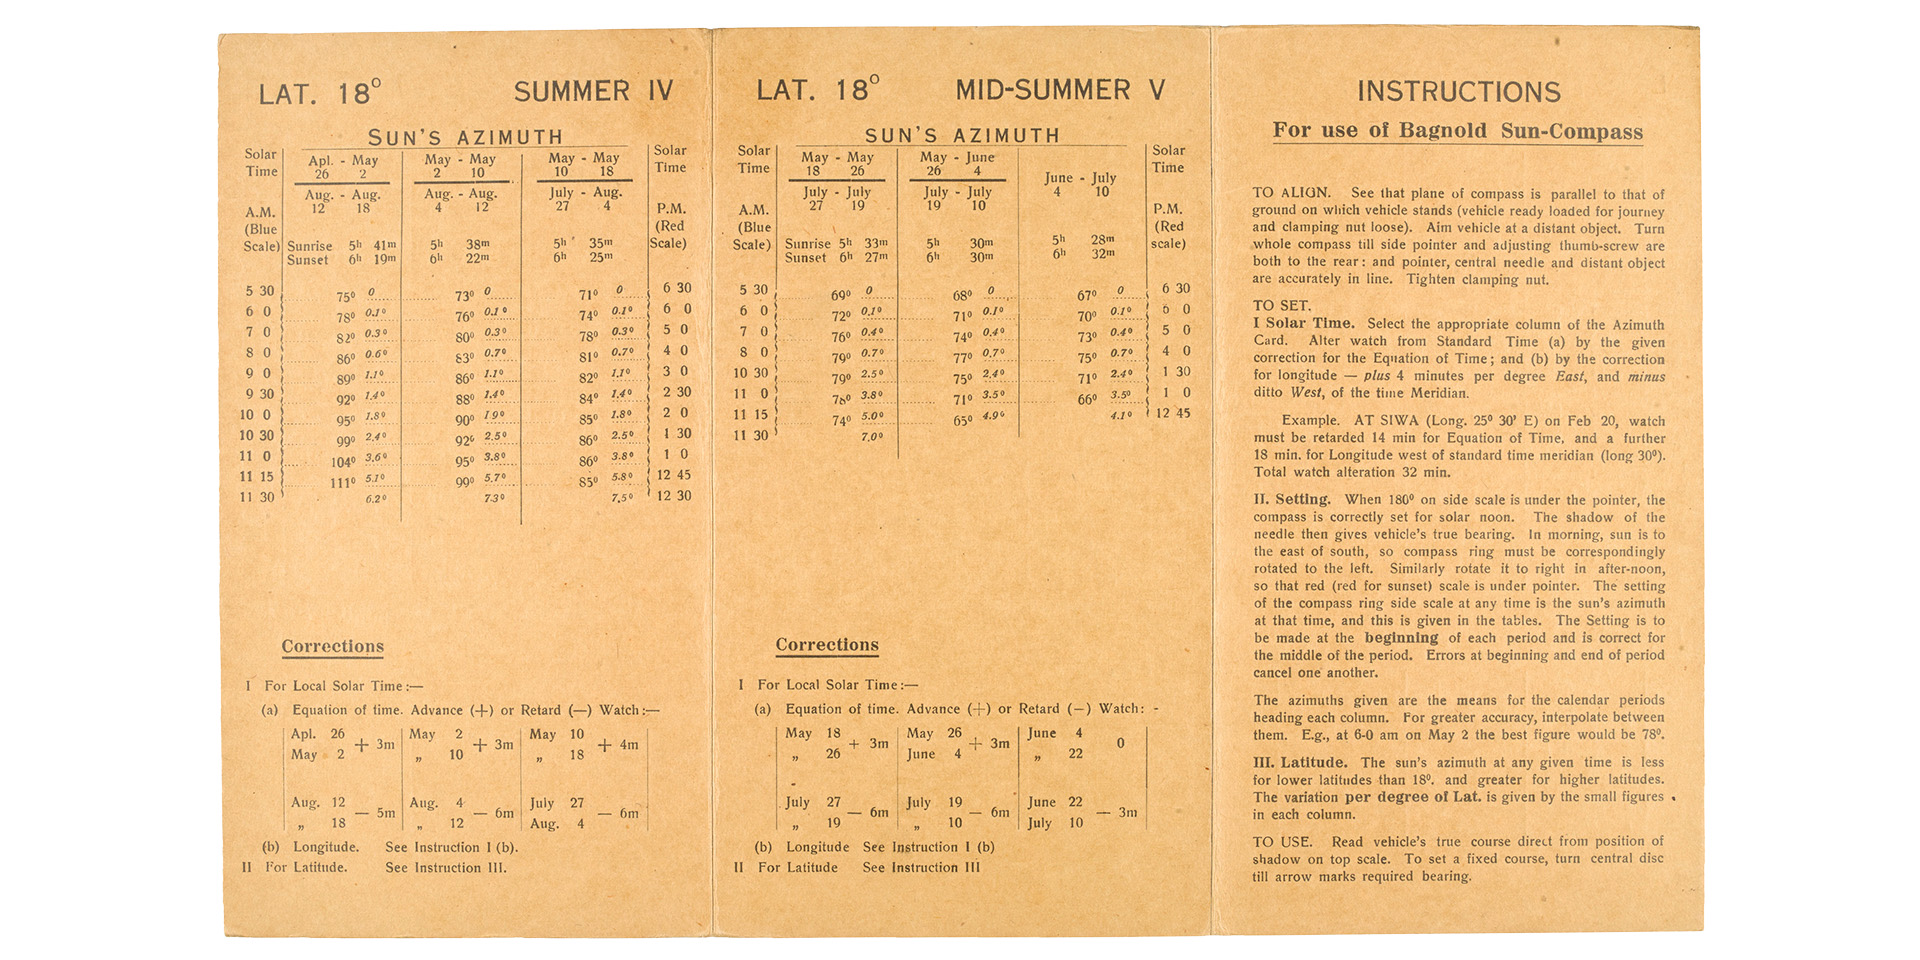 LAT. 18⁰ SUMMER IV
SUN'S AZIMUTH
Solar Time Apl. - May May - May May - May Solar Time
26 2 2 10 10 18
Aug. - Aug. Aug. - Aug. July - Aug.
12 18 4 12 27 4
A.M. P.M.
(Blue (Red
Scale) Sunrise 5h 41m 5h 38m 5h 35m Scale)
Sunset 6h 19m 6h 22m 6h 25m
5 30 75⁰ 0 73⁰ 0 71⁰ 0 6 30
6 0 78⁰ 0.1⁰ 76⁰ 0.1⁰ 74⁰ 0.1⁰ 6 0
7 0 82⁰ 0.3⁰ 80⁰ 0.3⁰ 78⁰ 0.3⁰ 5 0
8 0 86⁰ 0.6⁰ 83⁰ 0.7⁰ 81⁰ 0.7⁰ 4 0
9 0 89⁰ 1.1⁰ 86⁰ 1.1⁰ 82⁰ 1.1⁰ 3 0
9 30 92⁰ 1.4⁰ 88⁰ 1.4⁰ 84⁰ 1.4⁰ 2 30
10 0 95⁰ 1.8⁰ 90⁰ 1 9⁰ 85⁰ 1.8⁰ 2 0
10 30 99⁰ 2.4⁰ 92⁰ 2.5⁰ 86⁰ 2.5⁰ 1 30
11 0 104⁰ 3.6⁰ 95⁰ 3.8⁰ 86⁰ 3.8⁰ 1 0
11 15 111⁰ 5.1⁰ 99⁰ 5.7⁰ 85⁰ 5.8⁰ 12 45
11 30 6.2⁰ 7.3⁰ 7.5⁰ 12 30
Corrections
I For Local Solar Time :—
(a) Equation of time. Advance (+) or Retard (—) Watch :—
Apl. 26 + 3m May 2 + 3m May 10 + 4m
May 2 „ 10 „ 18
Aug. 12 — 5m Aug. 4 — 6m July 27 — 6m
„ 18 „ 12 Aug. 4
(b) Longitude. See Instruction I (b).
II For Latitude. See Instruction III.
LAT. 18⁰ MID-SUMMER V
SUN'S AZIMUTH
Solar Time May - May May - June June - July Solar Time
18 26 26 4 4 10
July - July July - July
27 19 19 10
A.M. P.M.
(Blue (Red
Scale) Sunrise 5h 33m 5h 30m 5h 28m scale)
Sunset 6h 27m 6h 30m 6h 32m
5 30 69⁰ 0 68⁰ 0 67⁰ 0 6 30
6 0 72⁰ 0.1⁰ 71⁰ 0.1⁰ 70⁰ 0.1⁰ 6 0
7 0 76⁰ 0.4⁰ 74⁰ 0.4⁰ 73⁰ 0.4⁰ 5 0
8 0 79⁰ 0.7⁰ 77⁰ 0.7⁰ 75⁰ 0.7⁰ 4 0
10 30 79⁰ 2.5⁰ 75⁰ 2.4⁰ 71⁰ 2.4⁰ 1 30
11 0 78⁰ 3.8⁰ 71⁰ 3.5⁰ 66⁰ 3.5⁰ 1 0
11 15 74⁰ 5.0⁰ 65⁰ 4.9⁰ 4.1⁰ 12 45
11 30 7.0⁰
Corrections
I For Local Solar Time :—
(a) Equation of time. Advance (+) or Retard (—) Watch: -
May 18 + 3m May 26 + 3m June 4 0
„ 26 June 4 „ 22
July 27 — 6m July 19 — 6m June 22 — 3m
„ 19 „ 10 July 10
(b) Longitude See Instruction I (b)
II For Latitude See Instruction III
INSTRUCTIONS
For use of Bagnold Sun-Compass
TO ALIGN. See that plane of compass is parallel to that of
ground on which vehicle stands (vehicle ready loaded for journey
and clamping nut loose). Aim vehicle at a distant object. Turn
whole compass till side pointer and adjusting thumb-screw are
both to the rear : and pointer, central needle and distant object
are accurately in line. Tighten clamping nut.
TO SET.
I Solar Time. Select the appropriate column of the Azimuth
Card. Alter watch from Standard Time (a) by the given
correction for the Equation of Time ; and (b) by the correction
for longitude — plus 4 minutes per degree East, and minus
ditto West, of the time Meridian.
Example. AT SIWA (Long. 25⁰ 30' E) on Feb 20, watch
must be retarded 14 min for Equation of Time, and a further
18 min. for Longitude west of standard time meridian (long 30⁰).
Total watch alteration 32 min.
II. Setting. When 180⁰ on side scale is under the pointer, the
compass is correctly set for solar noon. The shadow of the
needle then gives vehicle's true bearing. In morning, sun is to
the east of south, so compass ring must be correspondingly
rotated to the left. Similarly rotate it to right in after-noon,
so that red (red for sunset) scale is under pointer. The setting
of the compass ring side scale at any time is the sun's azimuth
at that time, and this is given in the tables. The Setting is to
be made at the beginning of each period and is correct for
the middle of the period. Errors at beginning and end of period
cancel one another.
The azimuths given are the means for the calendar periods
heading each column. For greater accuracy, interpolate between
them. E.g., at 6-0 am on May 2 the best figure would be 78⁰.
III. Latitude. The sun's azimuth at any given time is less
for lower latitudes than 18⁰. and greater for higher latitudes.
The variation per degree of Lat. is given by the small figures
in each column.
TO USE. Read vehicle's true course direct from position of
shadow on top scale. To set a fixed course, turn central disc
till arrow marks required bearing.